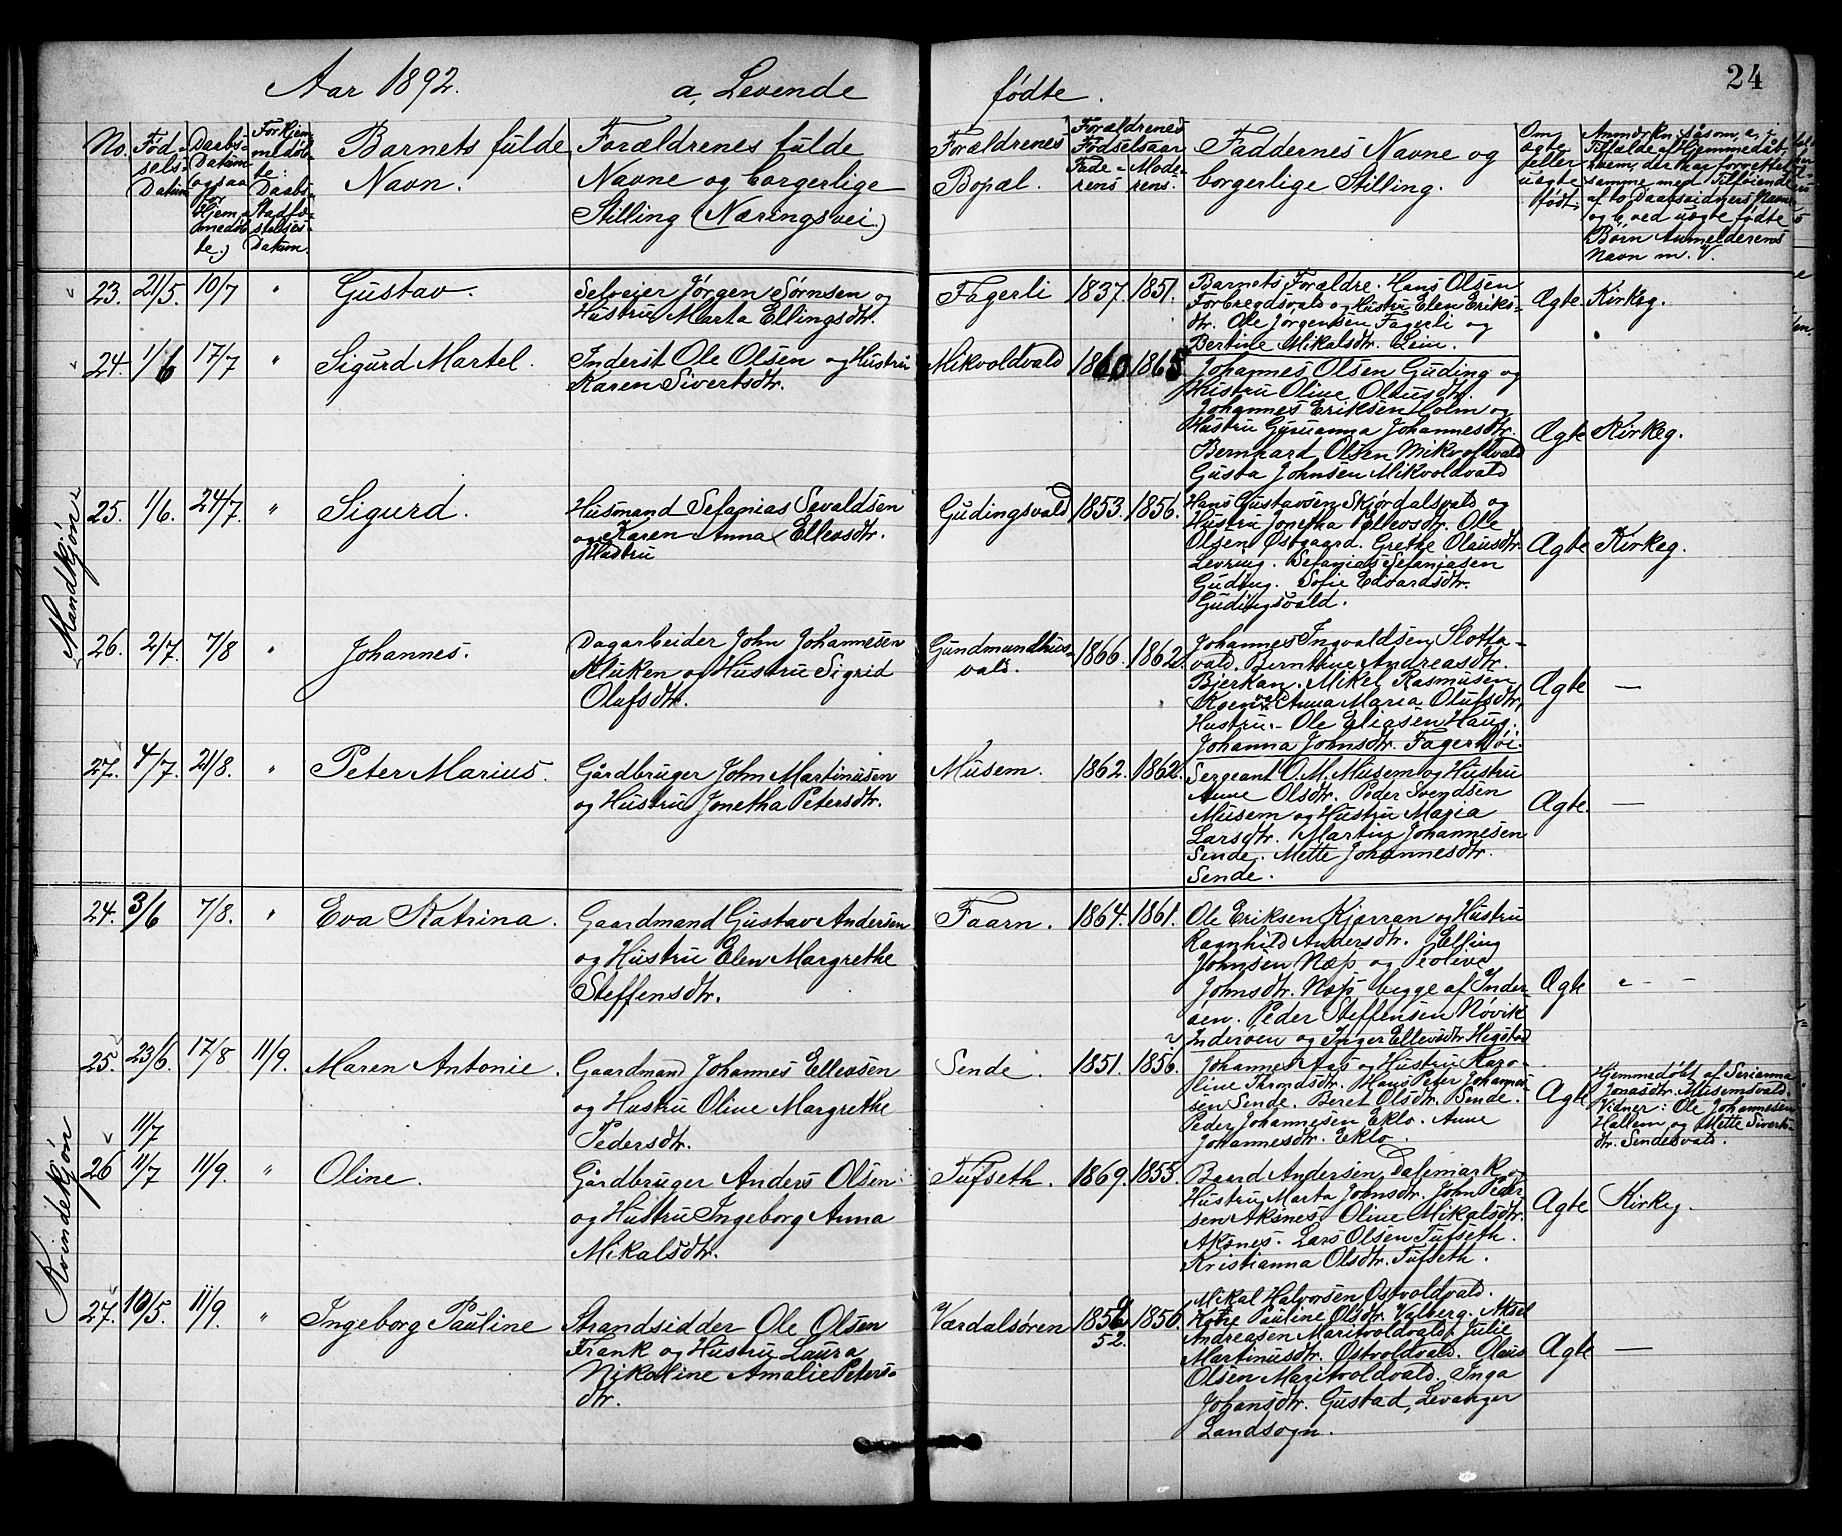 24
Aar 1892. a, Levende fødte.
No.
Fød-
sels-
Datum
Daabs-
Datum
ogsaa
Hjem-
medøb-
te.)
For Hjem-
medøb-
te:
Daabs-
Stadfæ-
stelses-
Datum.
Barnets fulde
Navn.
Forældrenes fulde
Navne og borgerlige
Stilling (Næringsvei.)
Forældrenes
Bopæl.
Forældrenes
Fødselsaar
Fade-
rens
Mode-
rens.
Faddernes Navne og
borgerlige Stilling.
Om
ægte
eller
uægte
født.
Anmærkn. såsom, a, i
Tilfælde af Hjemmedåb,
hvem, der har forrettet
samme med Tilføiende
af to Daabsvidners Navne
og b, ved uægte fødte
Børn Anmelderens
Navn m. V.
Mandkjøn
23. 21/5. 10/7 " Gustav.
Selveier Jørgen Sørnsen og
Hustru Marta Ellingsdtr.
Fagerli 1837. 1851.
Barnets Forældre. Hans Olsen
Forbregdsvald og Hustru Elen Eriks-
dtr. Ole Jørgensen Fagerli og
Bertine Mikalsdtr. Lein.
Ægte Kirkeg.
24. 1/6 17/7 " Sigurd Martel.
Inderst Ole Olsen og Hustru
Karen Sivertsdtr.
Mikvoldvald 1860 1865
Johannes Olsen Guding og
Hustru Oline Olausdtr.
Johannes Eriksen Holm og
Hustru Guruanna Johannesdtr.
Bernhard Olsen Mikvoldvald
Gusta Johnsen Mikvoldvald
Ægte Kirkeg.
25. 1/6. 24/7. " Sigurd.
Husmand Sefanias Sevaldsen
og Karen Anna Ellevsdtr.
Hustru
Gudingsvald 1853. 1856.
Hans Gustavsen Skjørdalsvald og
Hustru Jonetha Ellevsdtr. Ole
Olsen Østgaard. Grethe Olausdtr
Levring. Sefanias Sefaniasen
Guding. Sofie Edvardsdtr.
Gudingsvald.
Ægte Kirkeg.
26. 2/7. 7/8 " Johannes.
Dagarbeider John Johannesen
Kluken og Hustru Sigrid
Olufsdtr.
Gundmundhus-
vald. 1866. 1862.
Johannes Ingvaldsen Slotta-
vald. Berntine Andreasdtr.
Bjerkan. Mikel Rasmusen
Anna Maria Olufsdtr.
Hustru. Ole Eliasen Haug.
Johanna Johnsdtr. Fagerhøi.
Ægte —
27. 4/7. 21/8. " Peter Marius.
Gårdbruger John Martinusen
og Hustru Jonetha Petersdtr.
Musem. 1862. 1862.
Sergeant O. M. Musem og Hustru
Anne Olsdtr. Peder Svendsen
Musem og Hustru Maria
Larsdtr. Martin Johannesen
Sende. Mette Johannesdtr.
Sende.
Ægte. —
Kvindekjøn
24. 3/6 7/8. " Eva Katrina.
Gaardmand Gustav Andersen
og Hustru Elen Margrethe
Steffensdtr.
Faarn. 1864. 1861.
Ole Eriksen Kjærran og Hustru
Ragnhild Andersdtr. Elling
Johnsen Næss og Peolive
Johnsdtr. Næss begge af Inder-
øen. Peder Steffensen Nøvik
Inderøen og Inger Ellevsdtr Hegstad
Ægte " - -
25. 23/6 17/8 11/9. Maren Antonie.
Gaardmand Johannes Ellevsen
og Hustru Oline Margrethe
Pedersdtr.
Sende. 1851. 1856.
Johannes Aas og Hustru Karo-
line Trondsdtr. Hans Peter Johannes-
sen Sende. Beret Olsdtr. Sende.
Peder Johannesen Eklo. Anne
Johannesdtr. Eklo.
Ægte
Hjemmedøbt af Serianna
Jonasdtr. Musemsvald.
Vidner: Ole Johannesen
Hallem og Mette Siverts-
dtr. Sendesvald.
11/7
26 11/7 11/9. " Oline.
Gårdbruger Anders Olsen
og Hustru Ingeborg Anna
Mikalsdtr.
Tufseth. 1869. 1855.
Baard Andersen Dalemark og
Hustru Marta Johnsdtr. John Peder-
sen Aksnes Oline Mikalsdtr.
Aksnes. Lars Olsen Tufseth.
Kristianna Olsdtr. Tufseth.
Ægte Kirkeg.
27. 10/5. 11/9. " Ingeborg Pauline
Strandsidder Ole Olsen
Frank og Hustru Laura
Nikoline Amalie Peters-
dtr.
Værdalsøren 1856 1856.
52.
Mikal Halvorsen Østvoldvald.
Pauline Olsdtr. Valberg. Aksel
Andreasen Maritvoldvald. Julie
Martinusdtr. Østvoldvald. Olaus
Olsen Maritvoldvald. Inga
Johansdtr. Gustad, Levanger
Landsogn.
Ægte —